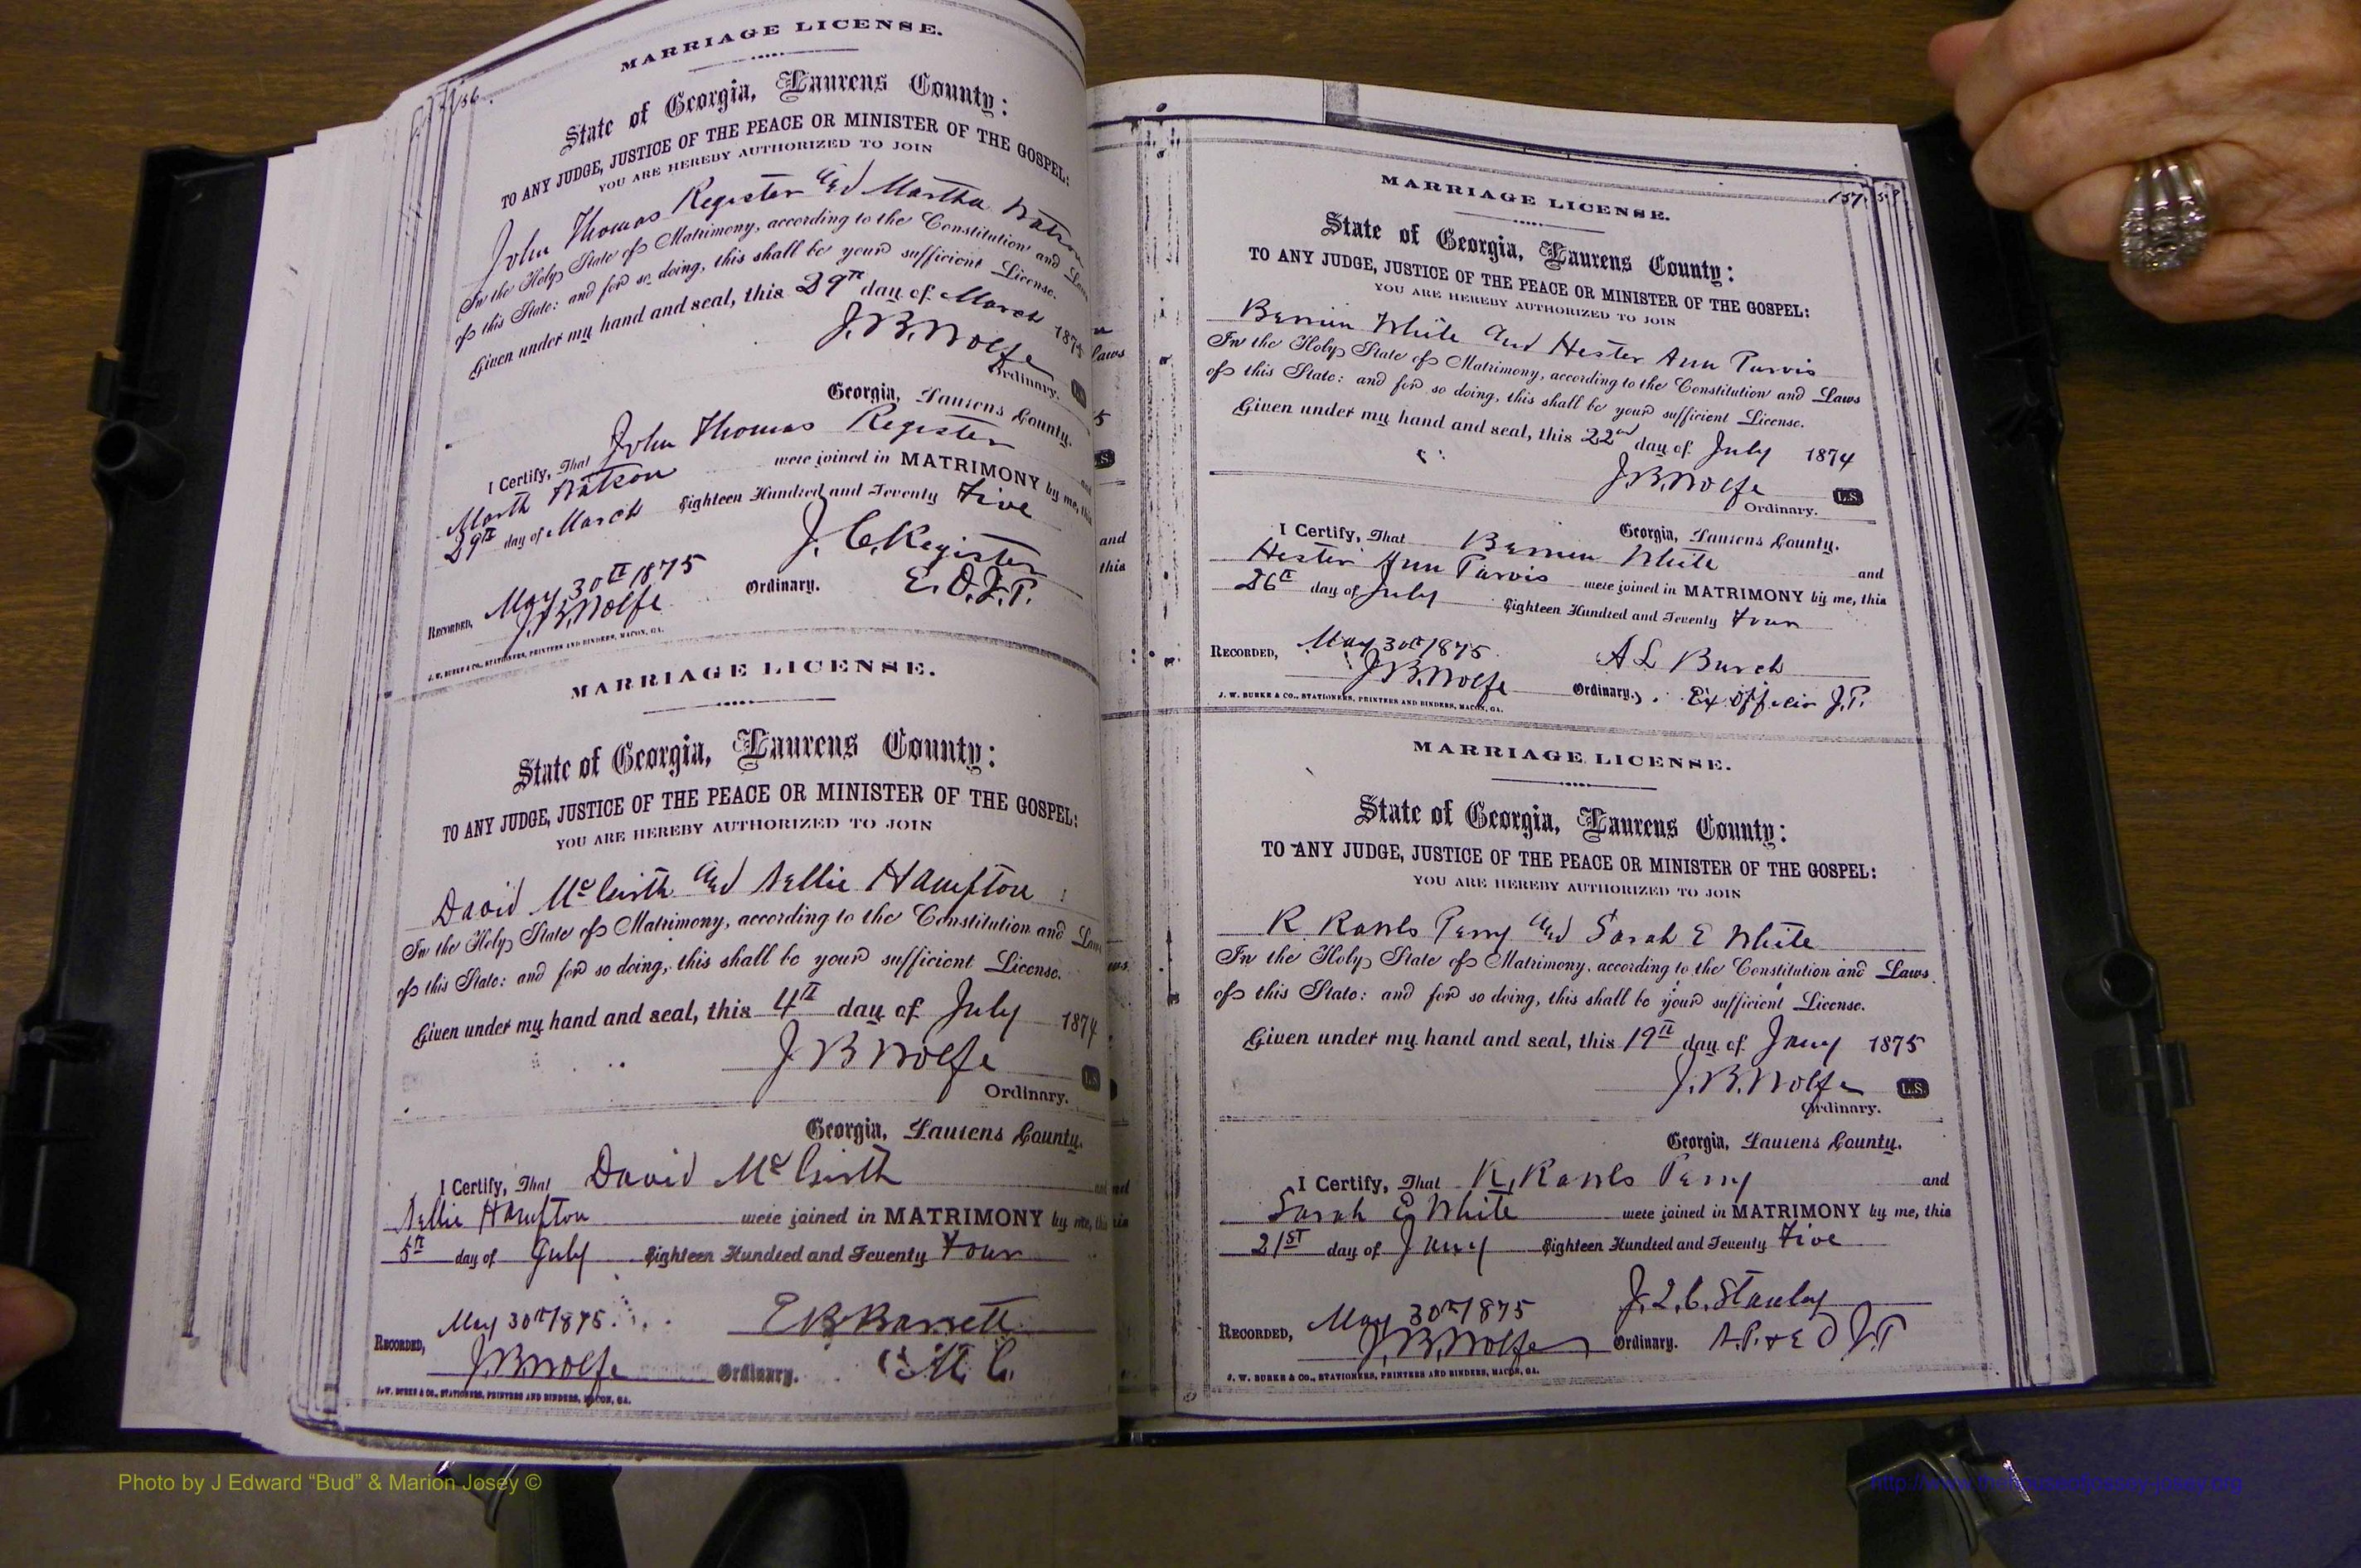 156.
MARRIAGE LICENSE.
State of Georgia, Laurens County:
TO ANY JUDGE, JUSTICE OF THE PEACE OR MINISTER OF THE GOSPEL:
YOU ARE HEREBY AUTHORIZED TO JOIN
John Thomas Register and Martha Watson
In the Holy State of Matrimony, according to the Constitution and Laws
of this State: and for so doing, this shall be your sufficient License.
Given under my hand and seal, this 29th day of March 1875
J.B. Wolfe
Ordinary.
Georgia, Laurens County.
I Certify, That John Thomas Register and
Marth Watson were joined in MATRIMONY by me, this
29th day of March Eighteen Hundred and Seventy Five
J. C. Register
RECORDED, May 30th 1875
J.B. Wolfe Ordinary. E. O. J. P.
J. W. BURKE & CO., STATIONERS, PRINTERS AND BINDERS, MACON, GA.
MARRIAGE LICENSE.
State of Georgia, Laurens County:
TO ANY JUDGE, JUSTICE OF THE PEACE OR MINISTER OF THE GOSPEL:
YOU ARE HEREBY AUTHORIZED TO JOIN
David McGirth and Nellie Hampton
In the Holy State of Matrimony, according to the Constitution and Laws
of this State: and for so doing, this shall be your sufficient License.
Given under my hand and seal, this 4th day of July 1874
J B Wolfe L.S.
Ordinary.
Georgia, Laurens County.
I Certify, That David McGirth and
Nellie Hampton were joined in MATRIMONY by me, this
5th day of July Eighteen Hundred and Seventy Four
RECORDED, May 30th 1875. E B Barrett
J.B. Wolfe Ordinary. M. G.
J. W. BURKE & CO., STATIONERS, PRINTERS AND BINDERS, MACON, GA.
157.
MARRIAGE LICENSE.
State of Georgia, Laurens County:
TO ANY JUDGE, JUSTICE OF THE PEACE OR MINISTER OF THE GOSPEL:
YOU ARE HEREBY AUTHORIZED TO JOIN
Berrien White and Hester Ann Purvis
In the Holy State of Matrimony, according to the Constitution and Laws
of this State: and for so doing, this shall be your sufficient License.
Given under my hand and seal, this 22nd day of July 1874
J.B. Wolfe L.S.
Ordinary.
Georgia, Laurens County.
I Certify, That Berrien White and
Hester Ann Purvis were joined in MATRIMONY by me, this
26th day of July Eighteen Hundred and Seventy Four
RECORDED, May 30th 1875 A L Burch
J.B. Wolfe Ordinary. Ex Officio J.P.
J. W. BURKE & CO., STATIONERS, PRINTERS AND BINDERS, MACON, GA.
MARRIAGE LICENSE.
State of Georgia, Laurens County:
TO ANY JUDGE, JUSTICE OF THE PEACE OR MINISTER OF THE GOSPEL:
YOU ARE HEREBY AUTHORIZED TO JOIN
R Rawls Perry and Sarah E White
In the Holy State of Matrimony, according to the Constitution and Laws
of this State: and for so doing, this shall be your sufficient License.
Given under my hand and seal, this 19th day of Jany 1875
J.B. Wolfe L.S.
Ordinary.
Georgia, Laurens County.
I Certify, That R. Rawls Perry and
Sarah E White were joined in MATRIMONY by me, this
21st day of Jany Eighteen Hundred and Seventy Five
RECORDED, May 30th 1875 Stanley
J.B. Wolfe Ordinary. N.P. & E O J.P
J. W. BURKE & CO., STATIONERS, PRINTERS AND BINDERS, MACON, GA.
Photo by J Edward “Bud” & Marion Josey ©